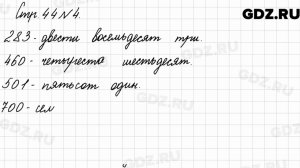 GDZ.RU
Стр. 44 № 4.
283 - двести восемьдесят три.
460 - четыреста шестьдесят.
501 - пятьсот один.
700 - сем